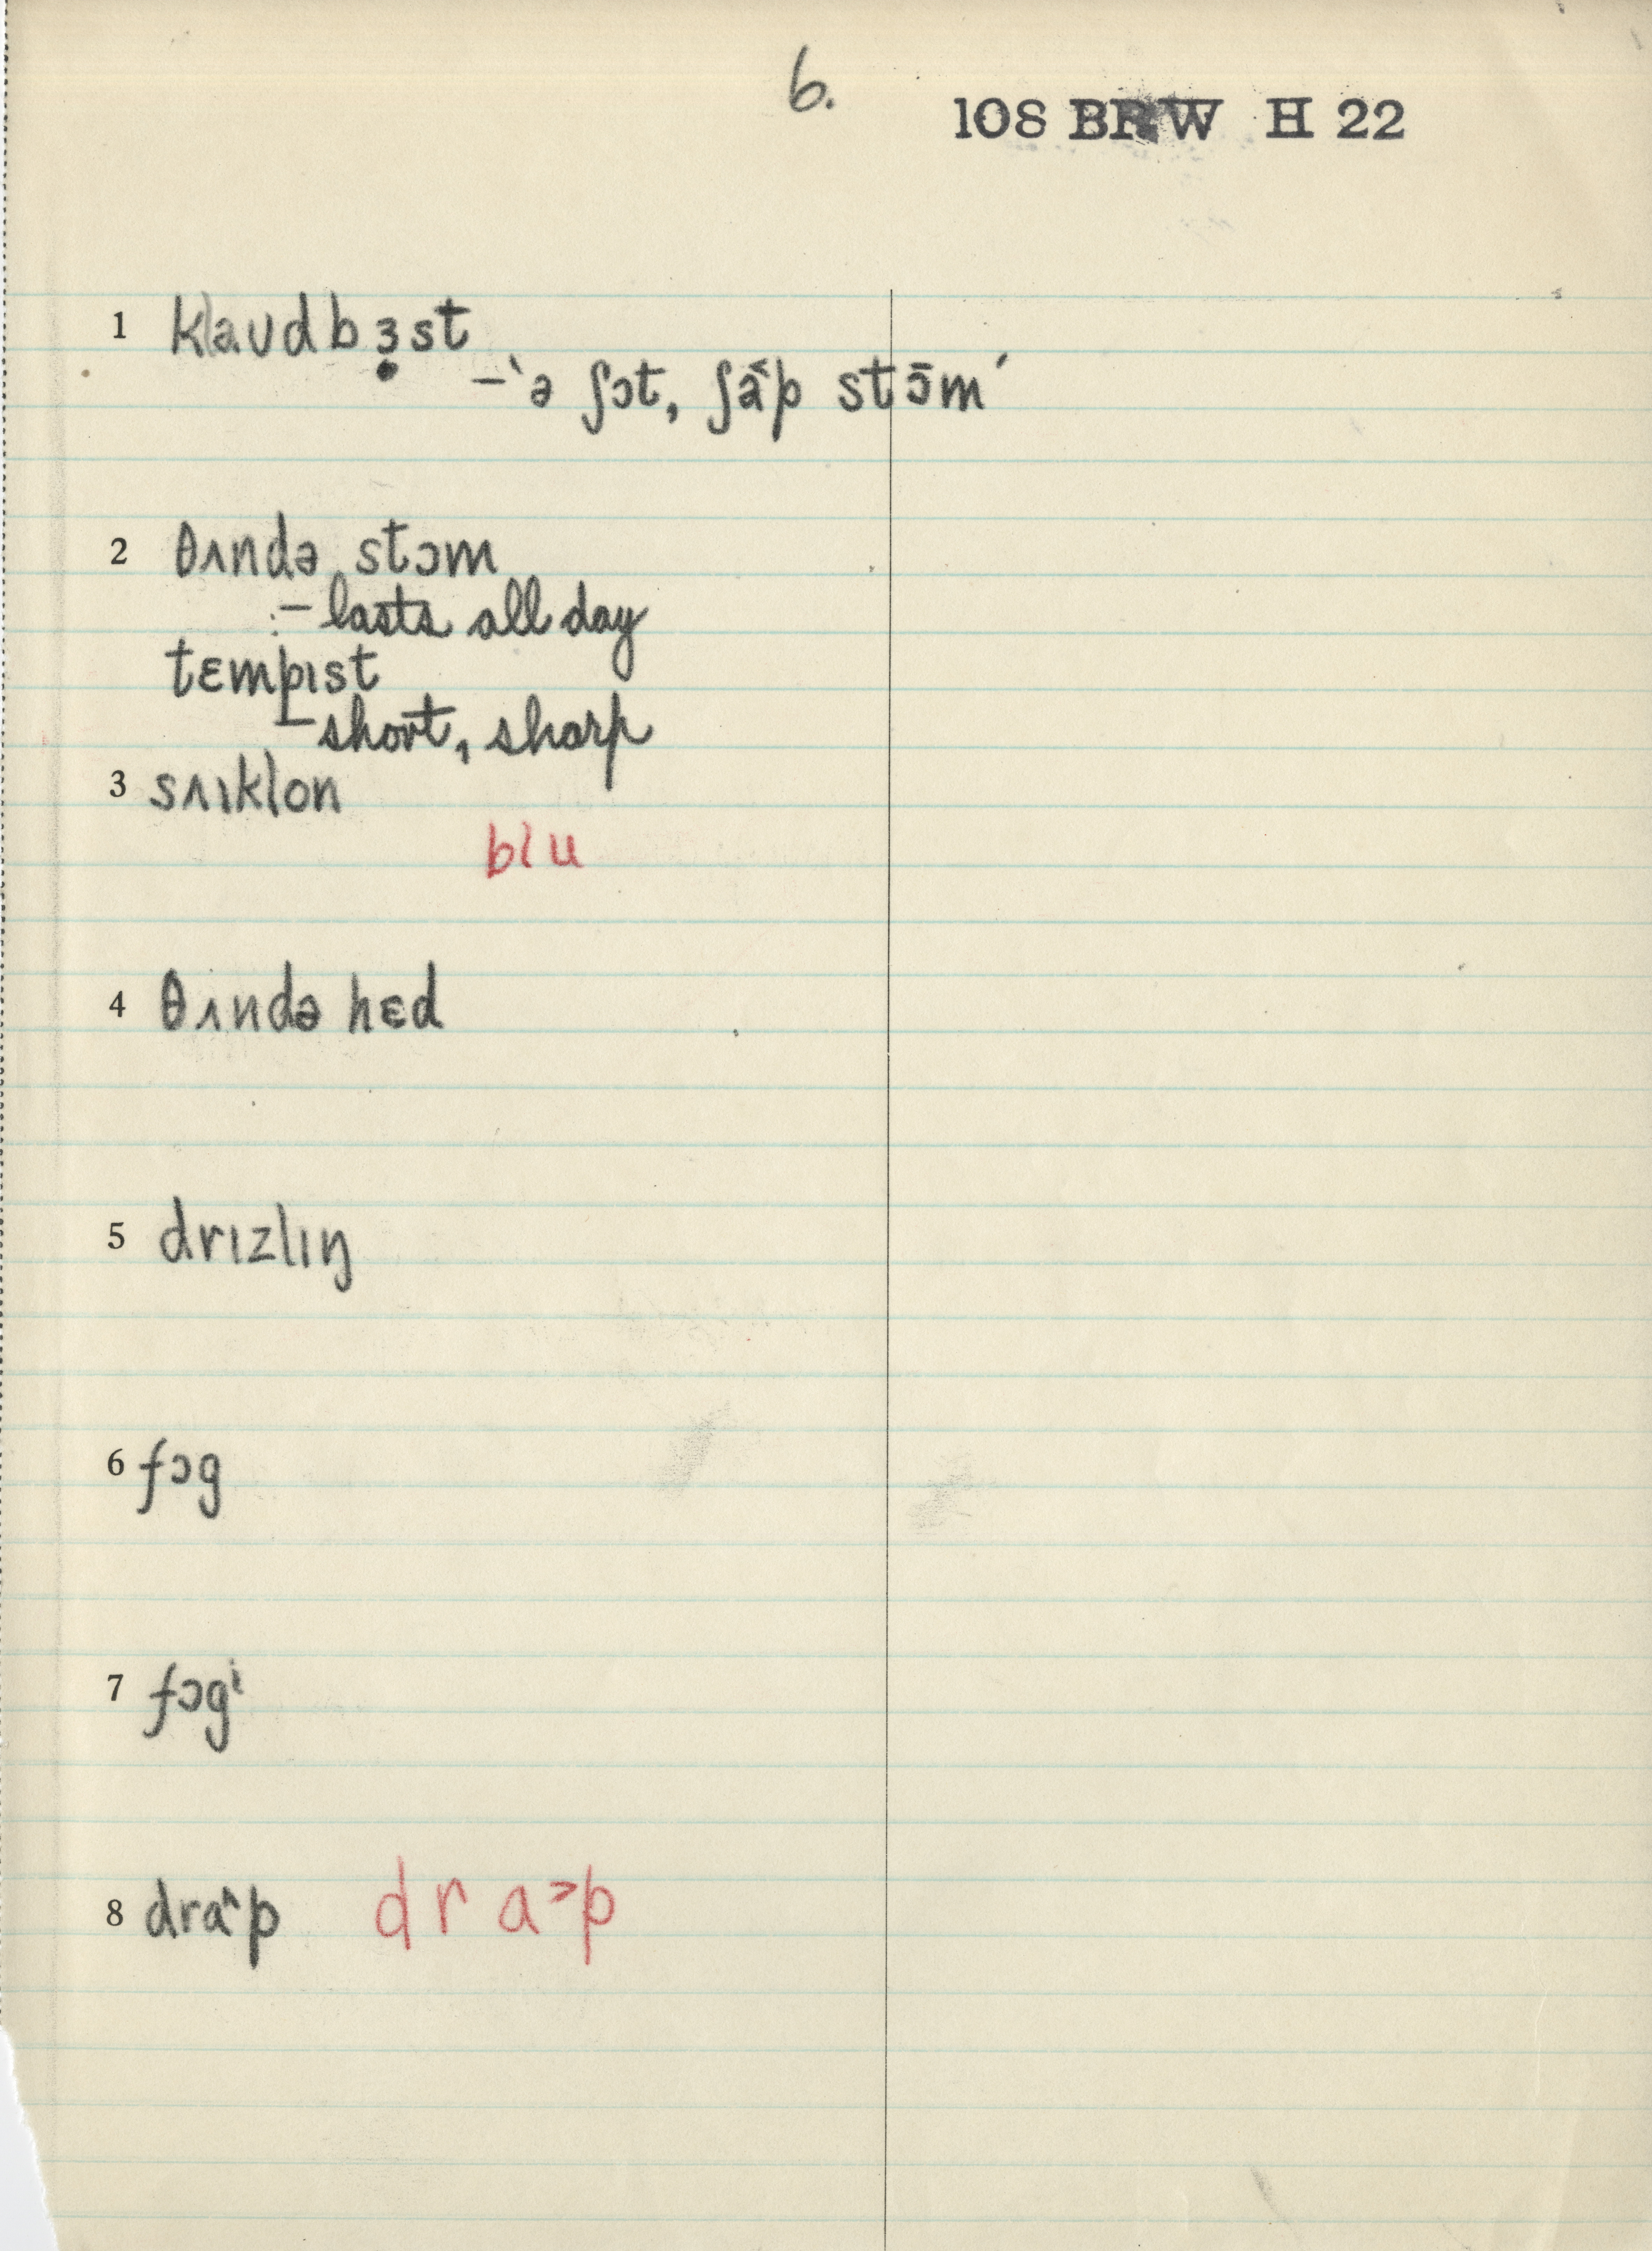 6.
108 BRW H 22
1 klaʊdbɜ̣st
–ˋə ʃɔt, ʃa˂p stɔ̄mˊ
2 θʌndə stɔm
– lasts all day
tɛmpɪst
– short, sharp
3 sʌɪklon
blu
4 θʌndə hɛd
5 drɪzlɪŋ
6 fɔg
7 fɔgⁱ
8 dra˄p dra˃p